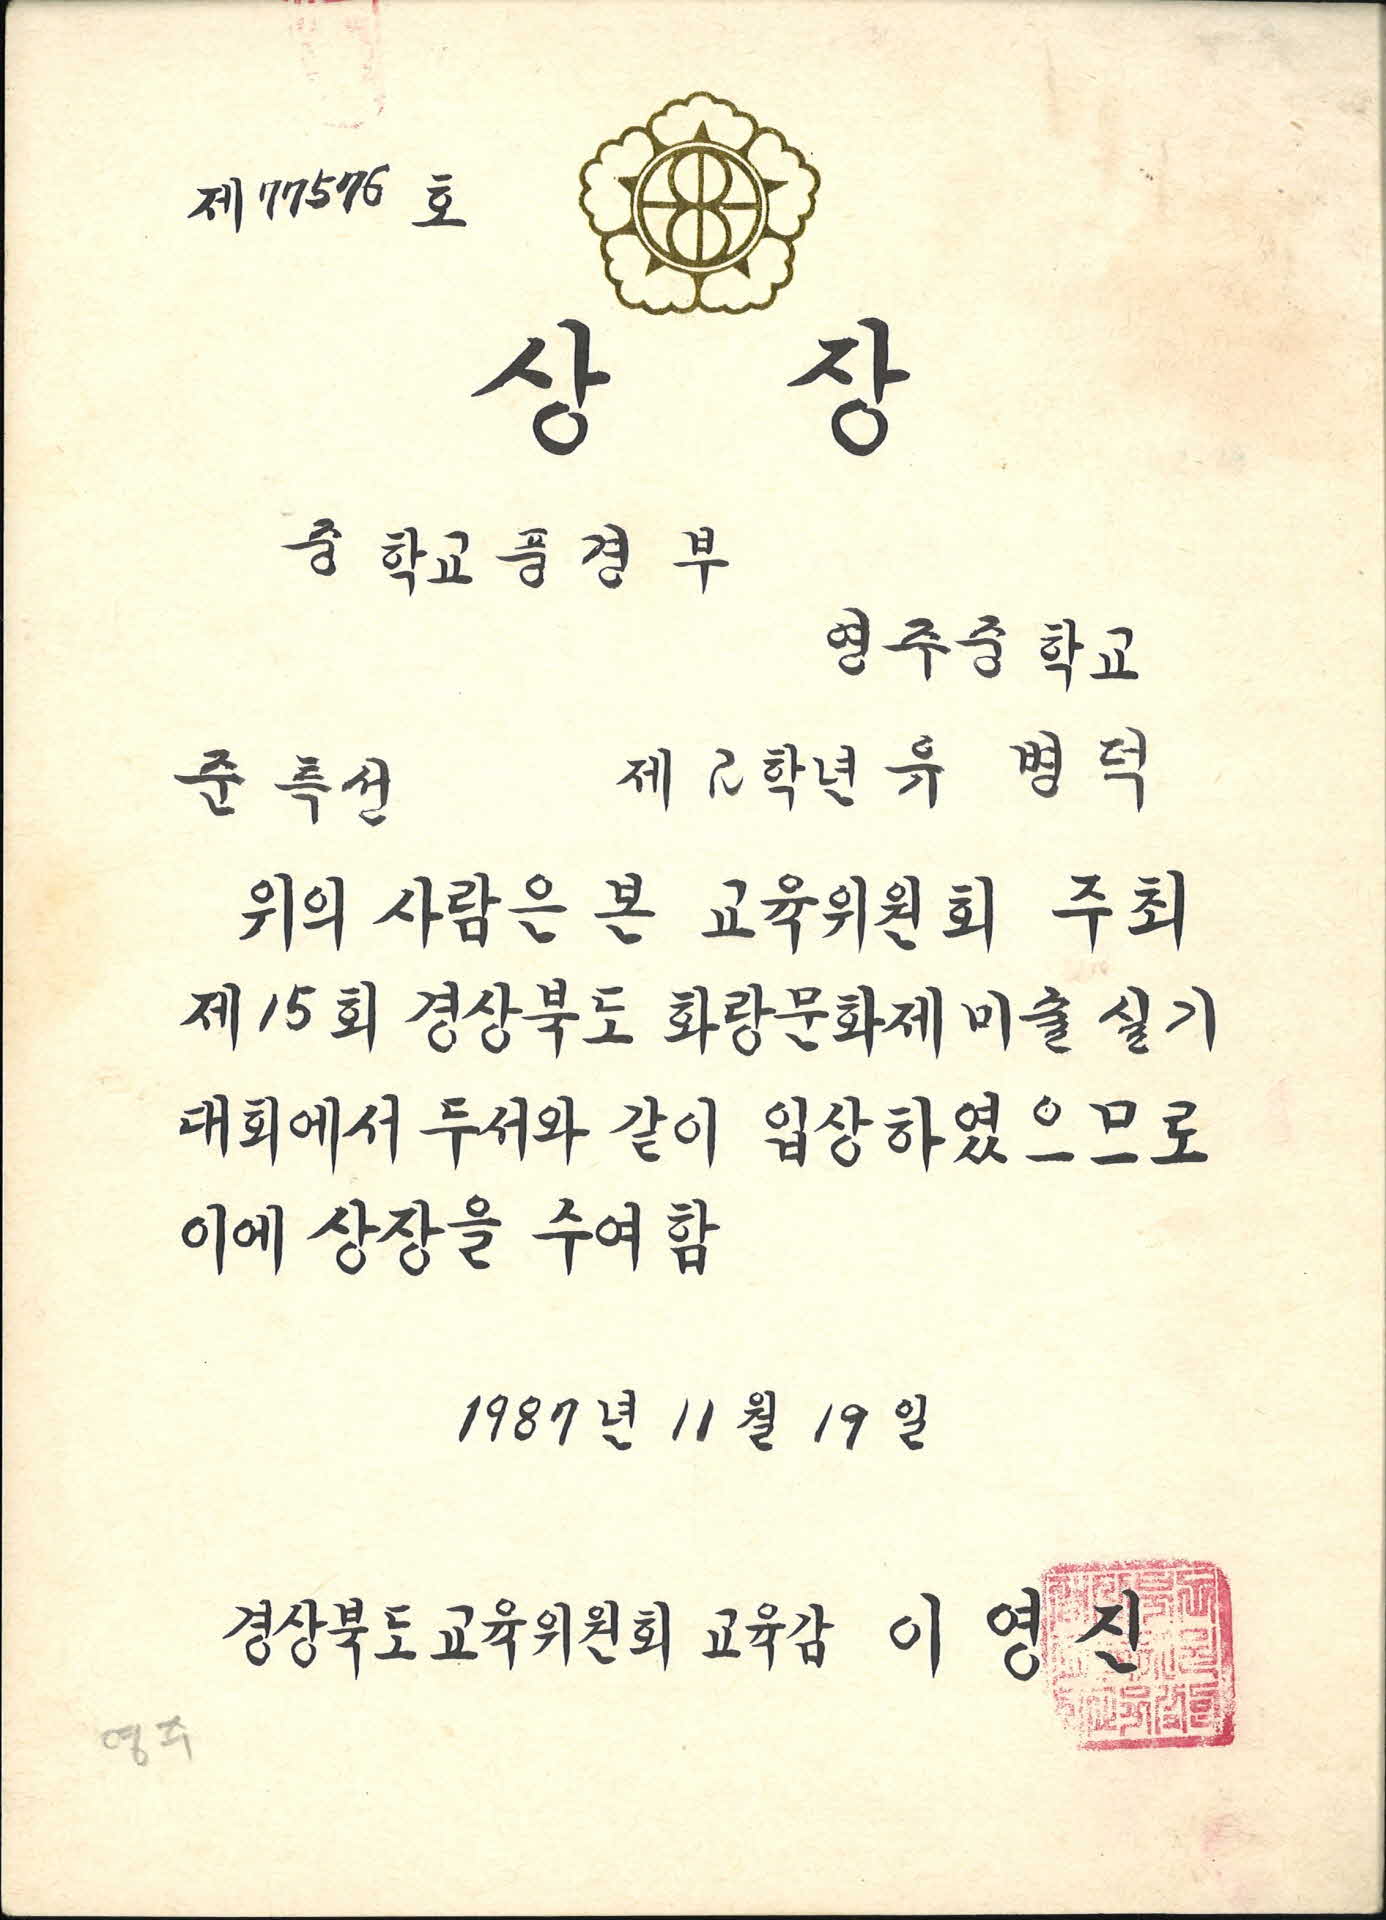 제 77576 호
상 장
중 학교 풍 경 부
영 주 중 학교
준 특선 제 2 학년 유 병 덕
위의 사람은 본 교육위원회 주최
제 15 회 경상북도 화랑문화제 미술 실기
대회에서 두서와 같이 입상하였으므로
이에 상장을 수여함
1987 년 11 월 19 일
경상북도교육위원회 교육감 이 영 진
영주